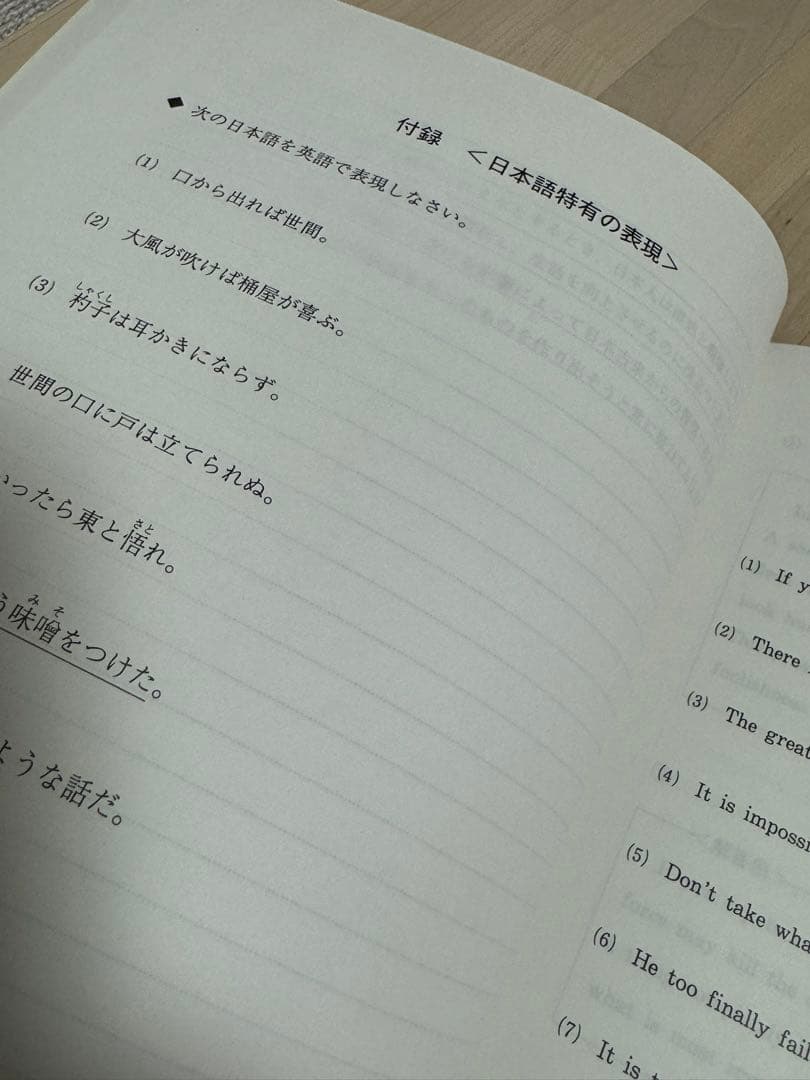 付録 <日本語特有の表現>
◆ 次の日本語を英語で表現しなさい。
(1) 口から出れば世間。
(2) 大風が吹けば桶屋が喜ぶ。
(3) 杓子は耳かきにならず。
しゃくし
世間の口に戸は立てられぬ。
ったら東と悟れ。
さと
う味噌をつけた。
みそ
ような話だ。
(1) If
(2) There
(3) The great
(4) It is
(5) Don't take
(6) He too finally
(7) It is